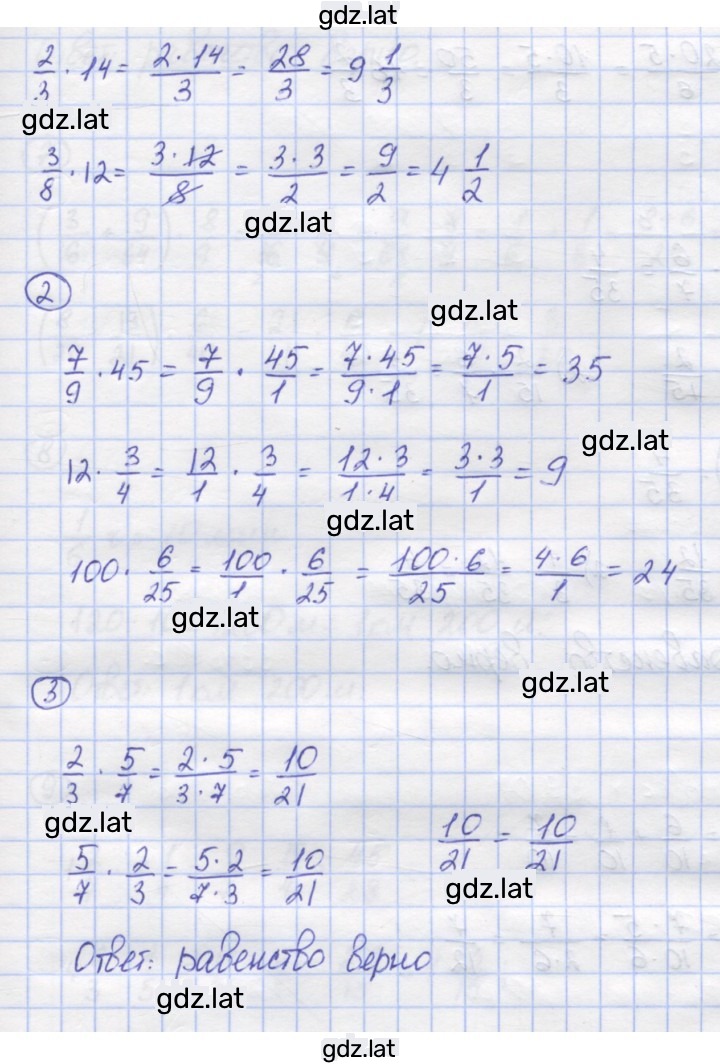 gdz.lat
2/3 · 14 = 2·14/3 = 28/3 = 9 1/3
gdz.lat
3/8 · 12 = 3·12/8 = 3·3/2 = 9/2 = 4 1/2
gdz.lat
2
gdz.lat
7/9 · 45 = 7/9 · 45/1 = 7·45/9·1 = 7·5/1 = 35
gdz.lat
12 · 3/4 = 12/1 · 3/4 = 12·3/1·4 = 3·3/1 = 9
gdz.lat
100 · 6/25 = 100/1 · 6/25 = 100·6/25 = 4·6/1 = 24
gdz.lat
3
gdz.lat
2/3 · 5/7 = 2·5/3·7 = 10/21
gdz.lat
5/7 · 2/3 = 5·2/7·3 = 10/21
10/21 = 10/21
gdz.lat
Ответ: равенство верно
gdz.lat
gdz.lat